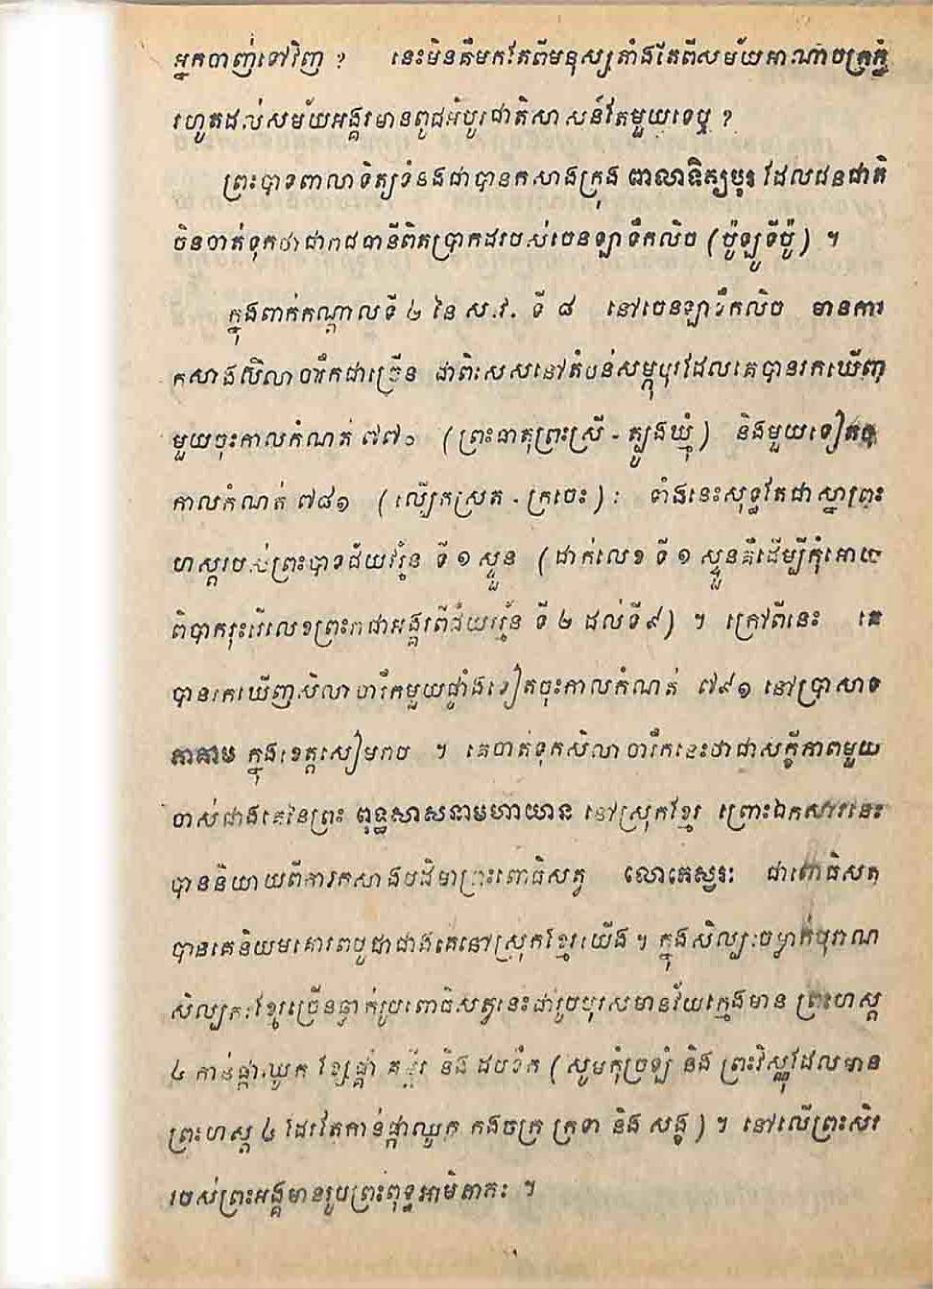 អ្នកចាញ់ទៅវិញ ? នេះមិនគឺមកតែពីមនុស្សតាំងតែពីសម័យអាណាចក្រភ្នំ
រហូតដល់សម័យអង្គរមានពូជអំបូរជាតិសាសន៍តែមួយទេឬ ?
ព្រះបាទពាលាទិត្យទំនងជាបានកសាងក្រុង ពាលាឌិត្យបុរ ដែលជនជាតិ
ចិនចាត់ទុកថាជារាជធានីពិតប្រាកដរបស់ចេនឡាទឹកលិច (ប៉ូឡូទីប៉ូ) ។
ក្នុងពាក់កណ្តាលទី ២ នៃ ស.វ. ទី ៨ នៅចេនឡាទឹកលិច មានការ
កសាងសិលាចារឹកជាច្រើន ជាពិសេសនៅតំបន់សម្ភុបុរដែលគេបានរកឃើញ
មួយចុះកាលកំណត់ ៧៧០ (ព្រះធាតុព្រះស្រី - ត្បូងឃ្មុំ) និងមួយទៀតចុះ
កាលកំណត់ ៧៨១ (ល្បើកស្រត - ក្រចេះ) : ទាំងនេះសុទ្ធតែជាស្នាព្រះ
ហស្តរបស់ព្រះបាទជ័យវរ្ម័ន ទី ១ ស្ទួន (ដាក់លេខ ទី ១ ស្ទួនគឺដើម្បីកុំអោយ
ពិបាករុះរើលេខព្រះរាជាអង្គរពីជ័យវរ្ម័ន ទី ២ ដល់ទី៩) ។ ក្រៅពីនេះ គេ
បានរកឃើញសិលាចារឹកមួយផ្ទាំងទៀតចុះកាលកំណត់ ៧៩១ នៅប្រាសាទ
តាគាម ក្នុងខេត្តសៀមរាប ។ គេចាត់ទុកសិលាចារឹកនេះថាជាសក្ខីភាពមួយ
ចាស់ជាងគេនៃព្រះ ពុទ្ធសាសនាមហាយាន នៅស្រុកខ្មែរ ព្រោះឯកសារនេះ
បាននិយាយពីការកសាងបដិមាព្រះពោធិសត្វ លោកេស្វរៈ ជាពោធិសត្វ
បានគេនិយមគោរពបូជាជាងគេនៅស្រុកខ្មែរយើង ។ ក្នុងសិល្បៈចម្លាក់បុរាណ
សិល្បករខ្មែរច្រើនឆ្លាក់រូបពោធិសត្វនេះជារូបបុរសមានវ័យក្មេងមាន ព្រះហស្ត
៤ កាន់ផ្កាឈូក ខ្សែផ្គាំ គម្ពីរ និង ដបទឹក (សូមកុំច្រឡំ និង ព្រះវិស្ណុដែលមាន
ព្រះហស្ត ៤ ដែរតែកាន់ផ្កាឈូក កងចក្រ ក្រទា និង សង្ខ) ។ នៅលើព្រះសិរ
របស់ព្រះអង្គមានរូបព្រះពុទ្ធអាមិតាភះ ។